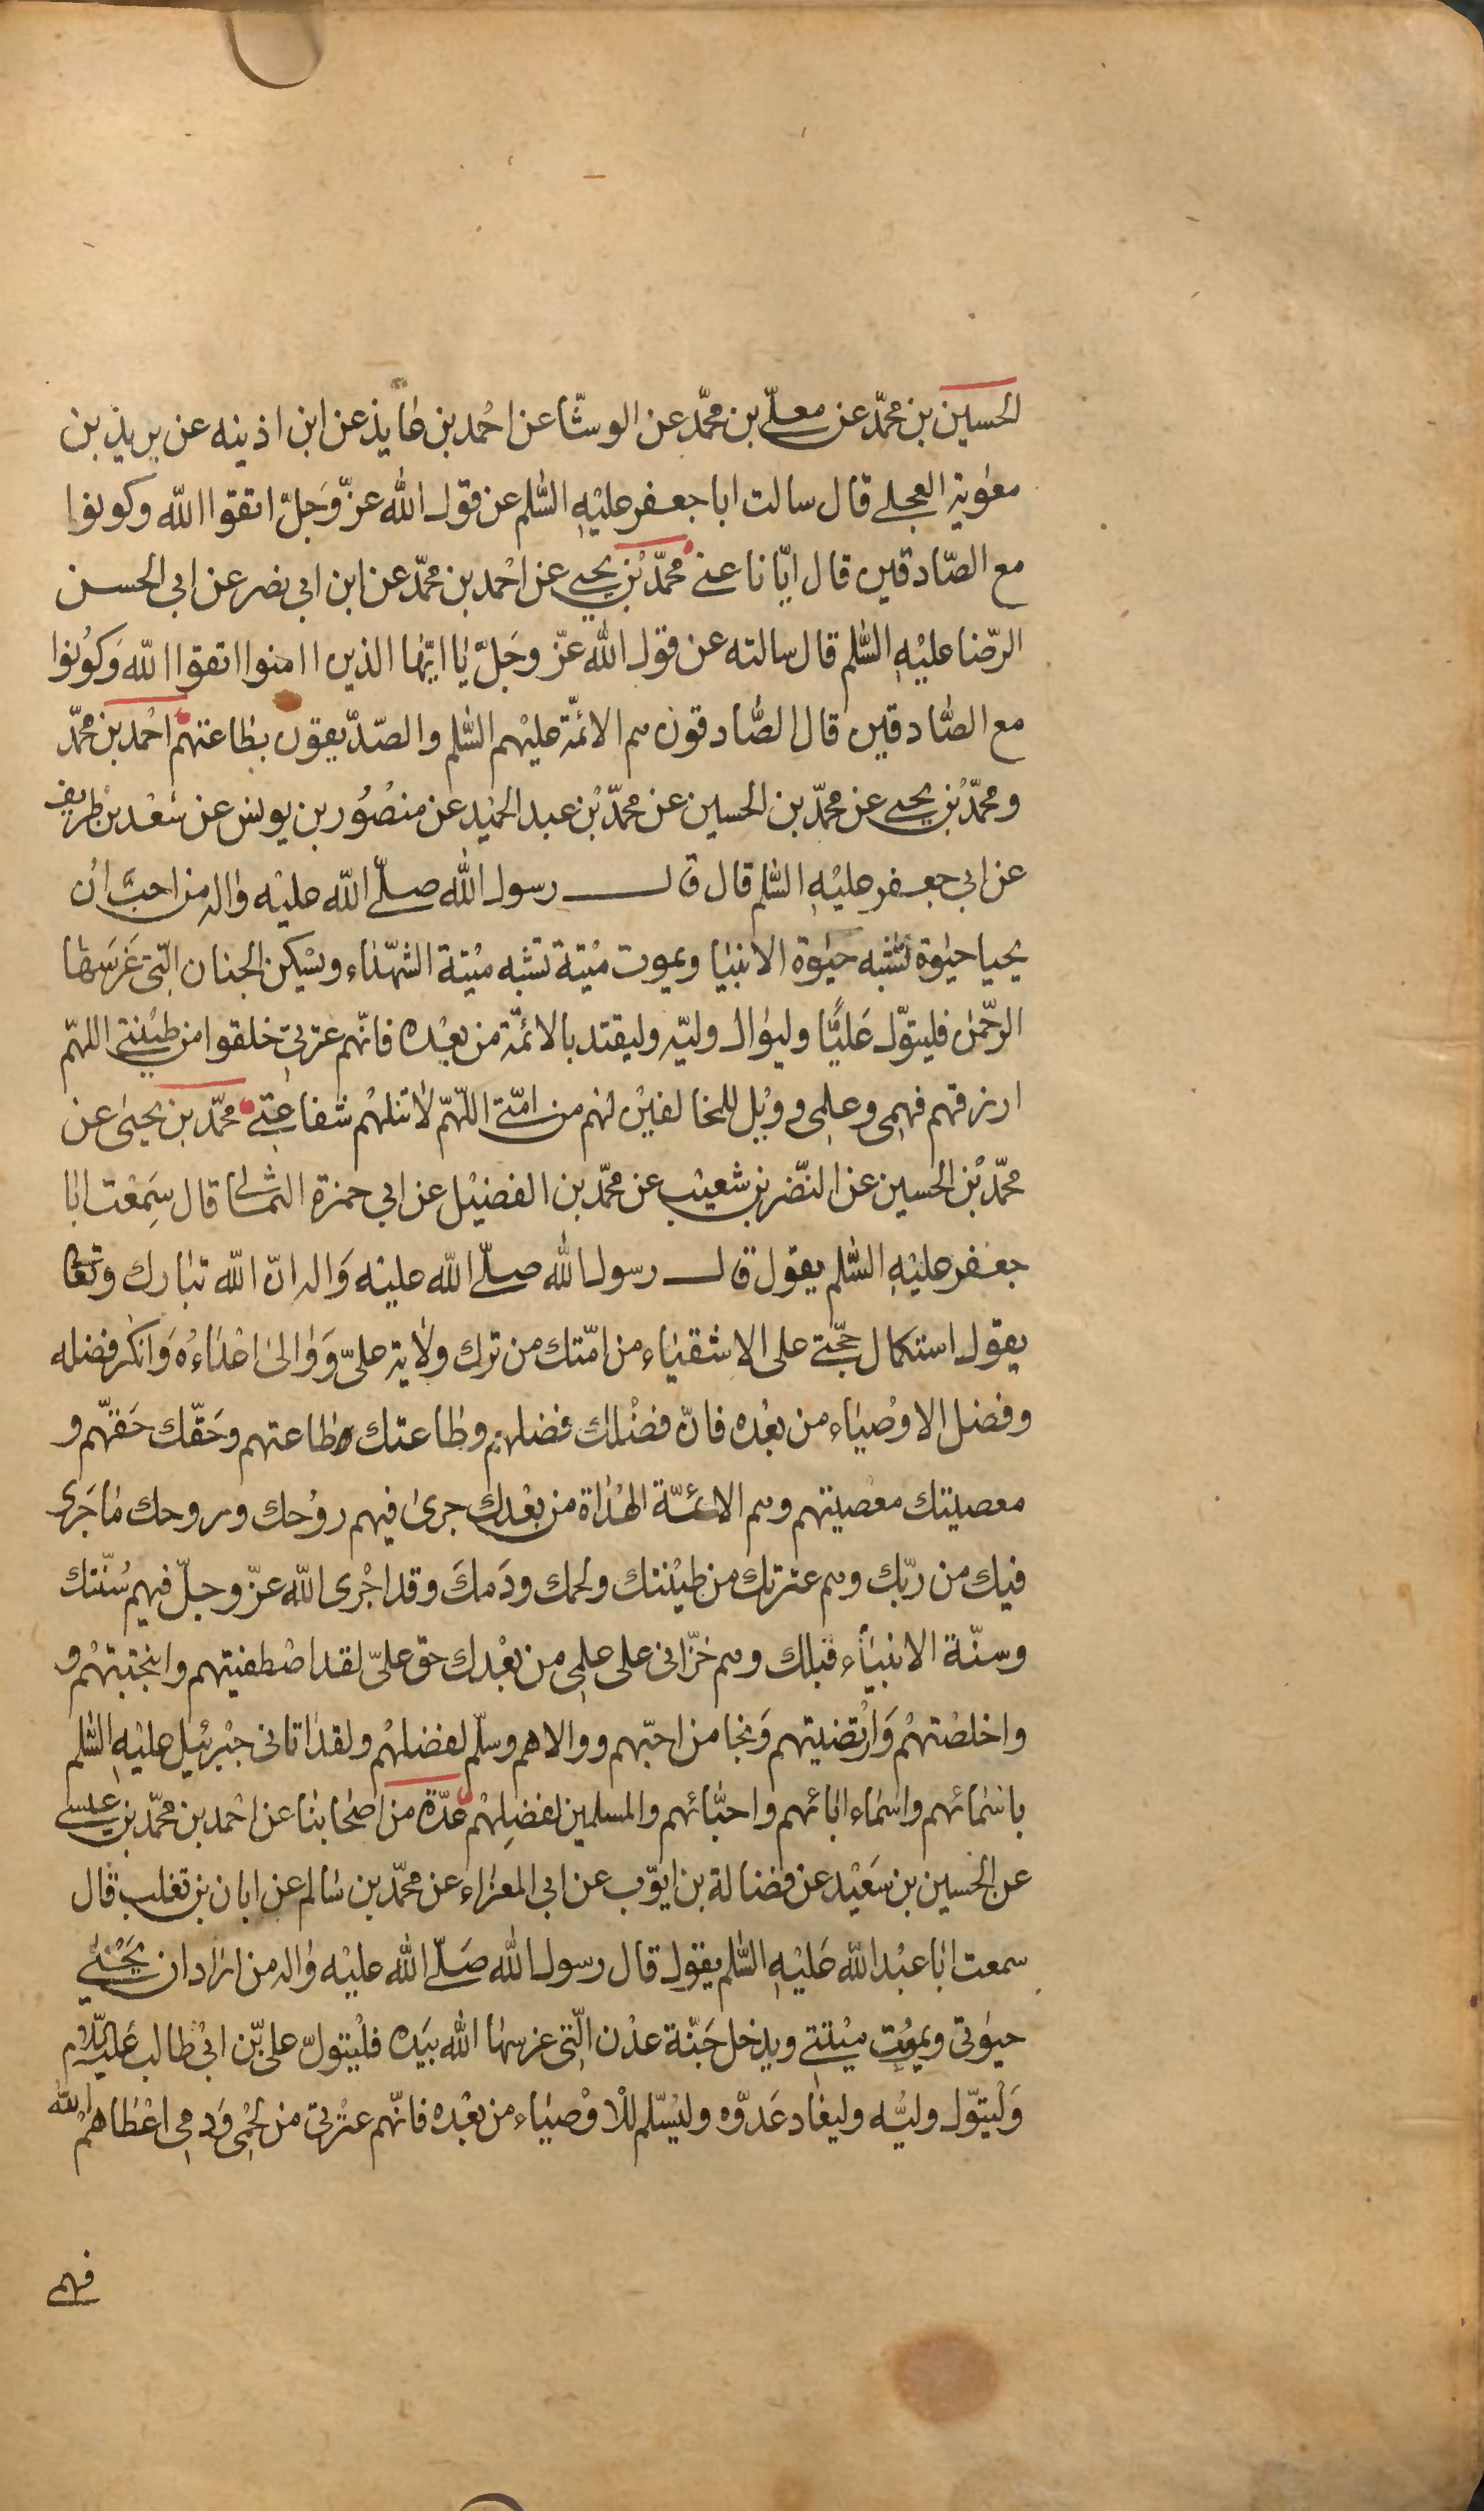 الحسين بن محمّد عن معلّى بن محمّد عن الوشّا عن احمد بن عايذ عن ابن اذينه عن بريد بن
معٰوية العجلى قال سالت ابا جعفر عليْهِ السّلم عن قول اللّه عزّ وَجَلّ اتقوا اللّه وكونوا
مع الصّادقين قال ايّانا عنى محمّد بْن يحيى عن احْمد بن محمّد عن ابن ابي نصر عن ابي الحسن
الرّضا عليْهِ السّلم قال سالته عن قول اللّه عزّ وجَلّ يٰا ايّها الذين اامنوا اتقوا اللّه وَكوُنوا
مع الصّادقين قال الصّادقون هم الائمّة عليْهم السّلم والصّدّيقون بطاعتهم احْمد بن محمّد
ومحمّد بْن يحيى عن محمّد بن الحسين عن محمّد بْن عبد الحميْد عن منصُوُر بن يونس عن سَعْد بن طريف
عن ابي جعفر عليْهِ السّلم قال قال رسول اللّه صلّى اللّه عليْه وٰاله من احبَّ انْ
يحيا حيٰوة تشبه حيٰوة الانبيٰا ويموت ميْتة تشبه ميْتة الشهّدٰاء ويسْكن الجنان الّتى غَرَسَهٰا
الرحّمن فليتوّل عَليًّا وليوٰال وليّه وليقتد بالائمّة من بعْده فانّهم عترتى خلقوا من طيْنتى اللهّم
ارزقهم فهمى وعلمى وويْل للمخالفيْن لهم من امّتى اللّهمّ لٰا تنلهُم شفاعتى محمّد بن يحيىٰ عن
محمّد بْن الحسين عن النّضر بن شعيْب عن محمّد بن الفضيْل عن ابي حمزة الثمالى قال سَمِعْت ابٰا
جعفر عليْهِ السّلم يقول قال رسول اللّه صلّى اللّه عليْه وَاله انّ اللّه تبٰارك وتعٰالى
يقول استكمال حجّتى على الاشقيٰاء من امّتك من ترك ولٰاية علىّ وَوٰالىٰ اعْدٰاءهُ وَانكر فضله
وفضل الاوْصيٰاء من بعْده فانّ فضْلك فضلهم وطٰاعتك طاعتهم وحَقّك حَقّهم و
معصيتك معْصيتهم وهم الائمّة الهُدٰاة من بعْدك جرىٰ فيهم روْحك وروحك مٰا جَرى
فيك من ربّك وهم عترتك من طيْنتك ولحمك ودَمكَ وقد اجْرى اللّه عزّ وجلّ فيهم سُنّتك
وسنّة الانبيٰاء قبلك وهم خزّانى على علمى من بعْدك حق علىّ لقد اصْطفيتهم وانتجبتهُم و
واخلصْتهُم وَارْتضيتهم وَنجٰا من احبّهم ووالاهم وسلّم لفضلهُم ولقد اتانى جبْرئيل عليْهِ السّلم
باسْمٰائهم واسْمٰاء ابٰائهم واحبّٰائهم والمسلمين لفضلِهْم عدّة من اصْحٰابنٰا عن احْمد بن محمّد بن عيسى
عن الحسين بن سَعيْد عن فضٰالة بن ايّوب عن ابي المغرٰاء عن محمّد بن سٰالم عن ابان بن تغلب قال
سمعت ابٰا عبْد اللّه عَليْهِ السّلم يقول قال رسول اللّه صَلّى اللّه عليْه وٰاله من ارٰاد ان يَحْيٰى
حيٰوتى ويموُت ميْتتى ويدخل جَنّة عدْن الّتى غرسهٰا اللّه بيَده فليْتولّ علىّ بن ابيْ طالب عَليْه السّلٰام
وَليْتوّل وليّه وليعٰاد عَدوّه وليْسلّم للْاوْصيٰاء من بعْده فانّهم عتْرتى من لحمْى وَدمى اعْطٰاهمُ اللّه
فهمى